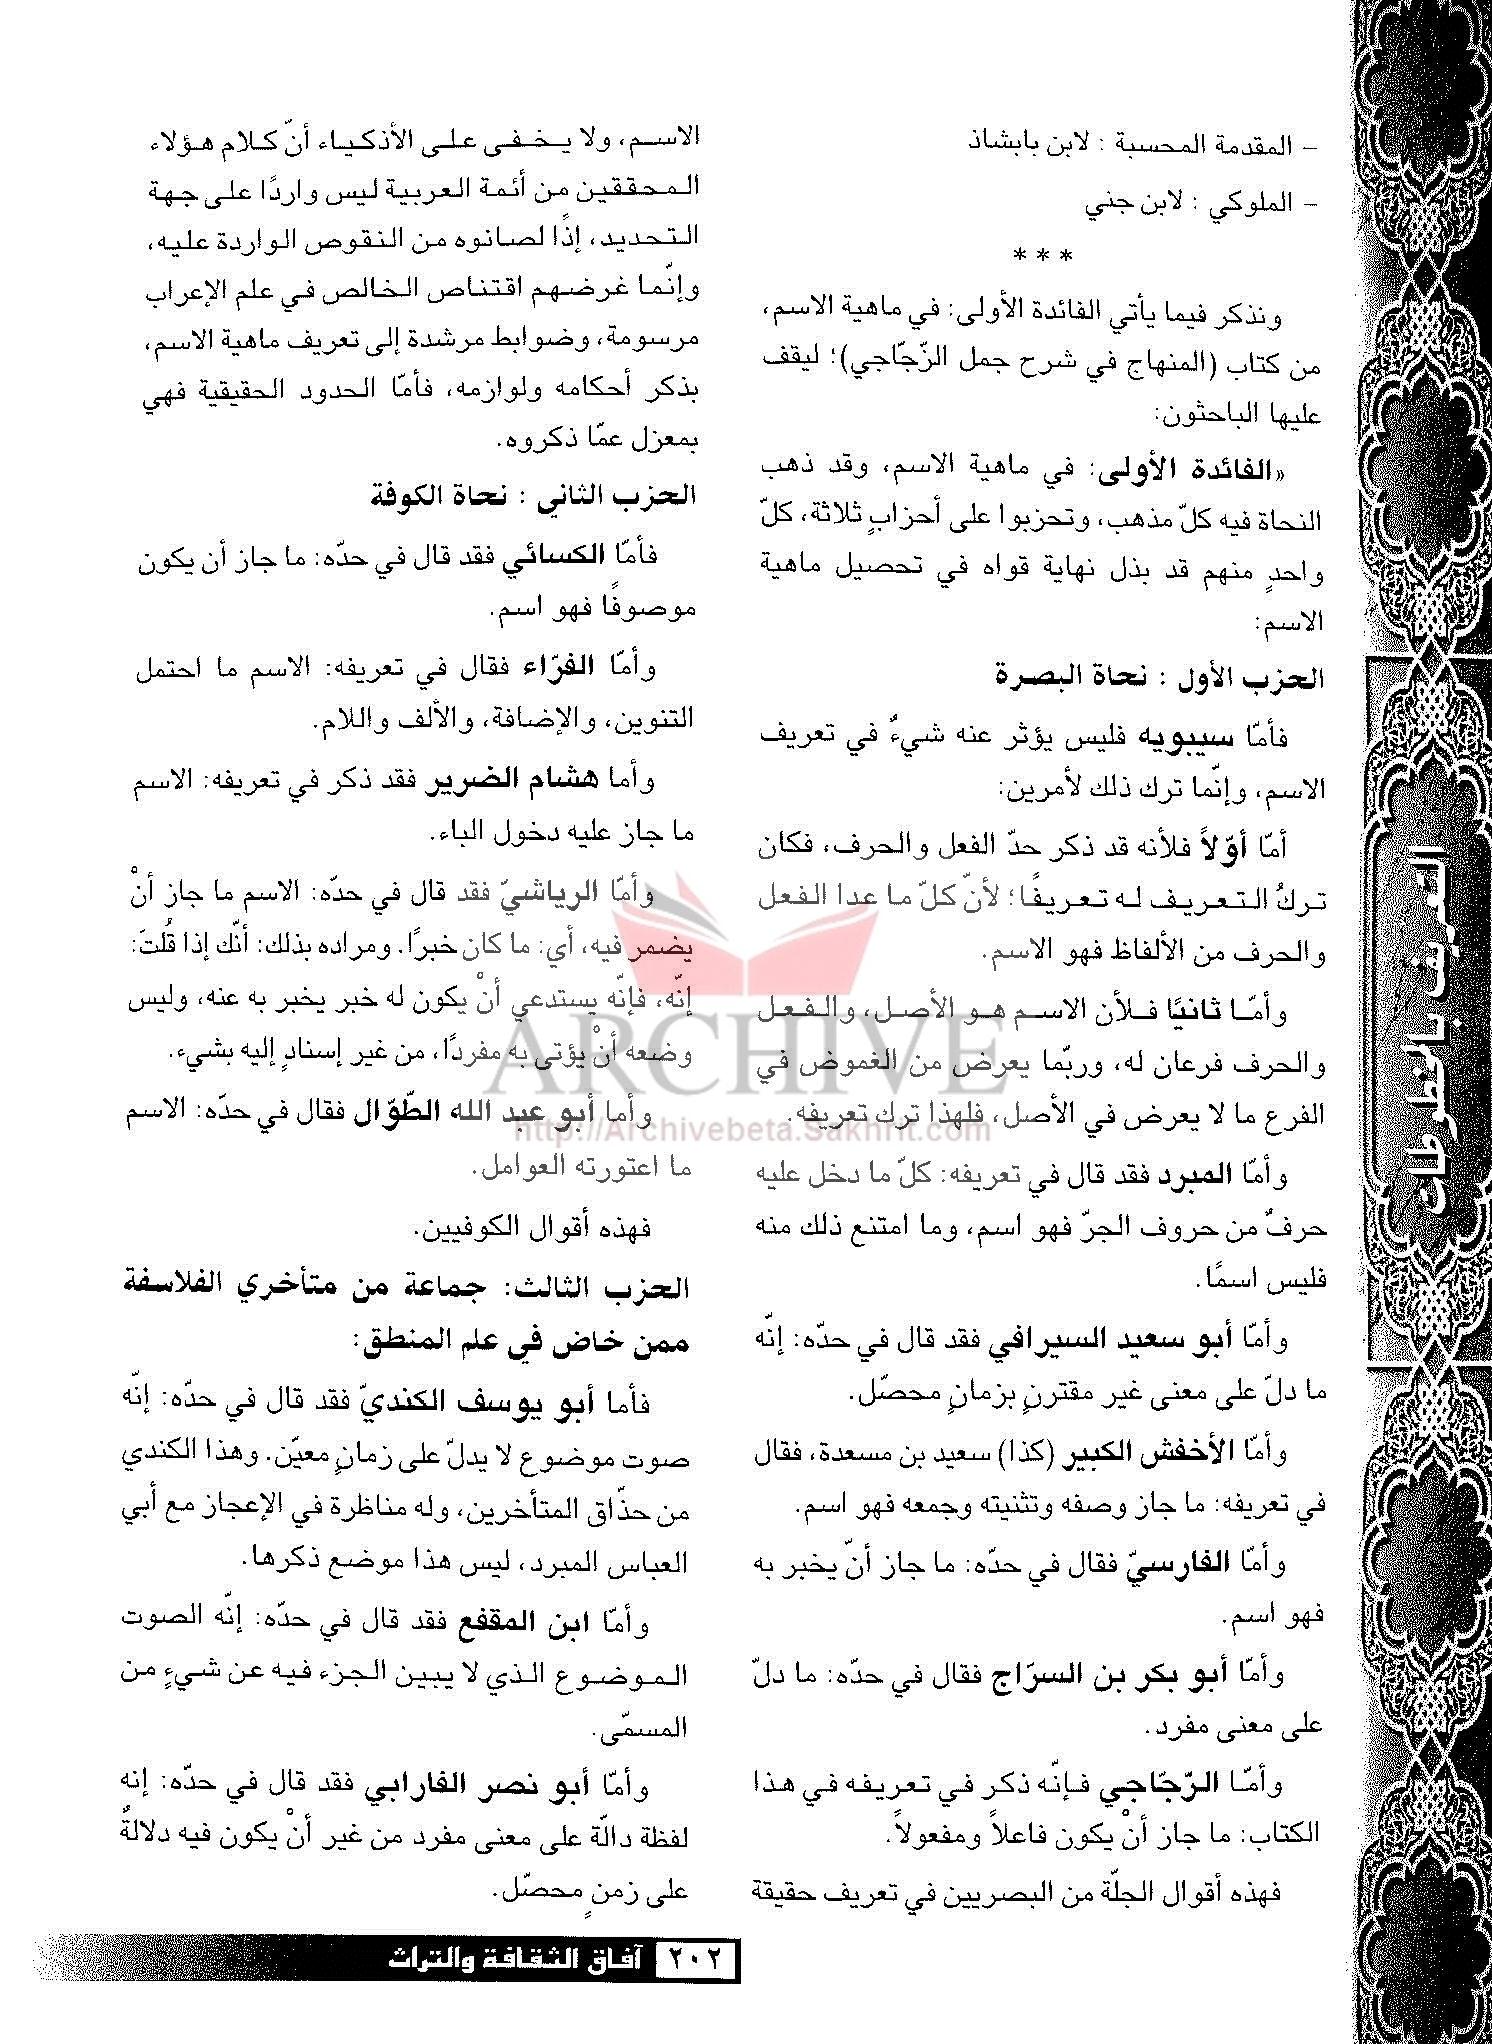 – المقدمة المحسبة : لابن بابشاذ
– الملوكي : لابن جني
* * *
ونذكر فيما يأتي الفائدة الأولى: في ماهية الاسم،
من كتاب (المنهاج في شرح جمل الزّجّاجي)؛ ليقف
عليها الباحثون:
«الفائدة الأولى: في ماهية الاسم، وقد ذهب
النحاة فيه كلّ مذهب، وتحزبوا على أحزابٍ ثلاثة، كلّ
واحدٍ منهم قد بذل نهاية قواه في تحصيل ماهية
الاسم:
الحزب الأول : نحاة البصرة
فأمّا سيبويه فليس يؤثر عنه شيءٌ في تعريف
الاسم، وإنّما ترك ذلك لأمرين:
أمّا أوّلاً فلأنه قد ذكر حدّ الفعل والحرف، فكان
تركُ التعريف له تعريفًا؛ لأنّ كلّ ما عدا الفعل
والحرف من الألفاظ فهو الاسم.
وأمّا ثانيًا فلأن الاسم هو الأصل، والفعل
والحرف فرعان له، وربّما يعرض من الغموض في
الفرع ما لا يعرض في الأصل، فلهذا ترك تعريفه.
وأمّا المبرد فقد قال في تعريفه: كلّ ما دخل عليه
حرفٌ من حروف الجرّ فهو اسم، وما امتنع ذلك منه
فليس اسمًا.
وأمّا أبو سعيد السيرافي فقد قال في حدّه: إنّه
ما دلّ على معنى غير مقترنٍ بزمانٍ محصّل.
وأمّا الأخفش الكبير (كذا) سعيد بن مسعدة، فقال
في تعريفه: ما جاز وصفه وتثنيته وجمعه فهو اسم.
وأمّا الفارسيّ فقال في حدّه: ما جاز أنّ يخبر به
فهو اسم.
وأمّا أبو بكر بن السرّاج فقال في حدّه: ما دلّ
على معنى مفرد.
وأمّا الزّجّاجي فإنّه ذكر في تعريفه في هذا
الكتاب: ما جاز أنْ يكون فاعلاً ومفعولاً.
فهذه أقوال الجلّة من البصريين في تعريف حقيقة
الاسم، ولا يخفى على الأذكياء أنّ كلام هؤلاء
المحققين من أئمة العربية ليس واردًا على جهة
التحديد، إذًا لصانوه من النقوص الواردة عليه،
وإنّما غرضهم اقتناص الخالص في علم الإعراب
مرسومة، وضوابط مرشدة إلى تعريف ماهية الاسم،
بذكر أحكامه ولوازمه، فأمّا الحدود الحقيقية فهي
بمعزل عمّا ذكروه.
الحزب الثاني : نحاة الكوفة
فأمّا الكسائي فقد قال في حدّه: ما جاز أن يكون
موصوفًا فهو اسم.
وأمّا الفرّاء فقال في تعريفه: الاسم ما احتمل
التنوين، والإضافة، والألف واللام.
وأما هشام الضرير فقد ذكر في تعريفه: الاسم
ما جاز عليه دخول الباء.
وأمّا الرياشيّ فقد قال في حدّه: الاسم ما جاز أنْ
يضمر فيه، أي: ما كان خبرًا. ومراده بذلك: أنّك إذا قُلتَ:
إنّه، فإنّه يستدعي أنْ يكون له خبر يخبر به عنه، وليس
وضعه أنْ يؤتى به مفردًا، من غير إسنادٍ إليه بشيء.
وأما أبو عبد الله الطّوّال فقال في حدّه: الاسم
ما اعتورته العوامل.
فهذه أقوال الكوفيين.
الحزب الثالث: جماعة من متأخري الفلاسفة
ممن خاض في علم المنطق:
فأما أبو يوسف الكنديّ فقد قال في حدّه: إنّه
صوت موضوع لا يدلّ على زمانٍ معيّن. وهذا الكندي
من حذّاق المتأخرين، وله مناظرة في الإعجاز مع أبي
العباس المبرد، ليس هذا موضع ذكرها.
وأمّا ابن المقفع فقد قال في حدّه: إنّه الصوت
الموضوع الذي لا يبين الجزء فيه عن شيءٍ من
المسمّى.
وأمّا أبو نصر الفارابي فقد قال في حدّه: إنه
لفظة دالّة على معنى مفرد من غير أنْ يكون فيه دلالةٌ
على زمنٍ محصّل.
التعريف بالمخطوطات
ARCHIVE
http://Archivebeta.Sakhrit.com
٢٠٢ آفاق الثقافة والتراث